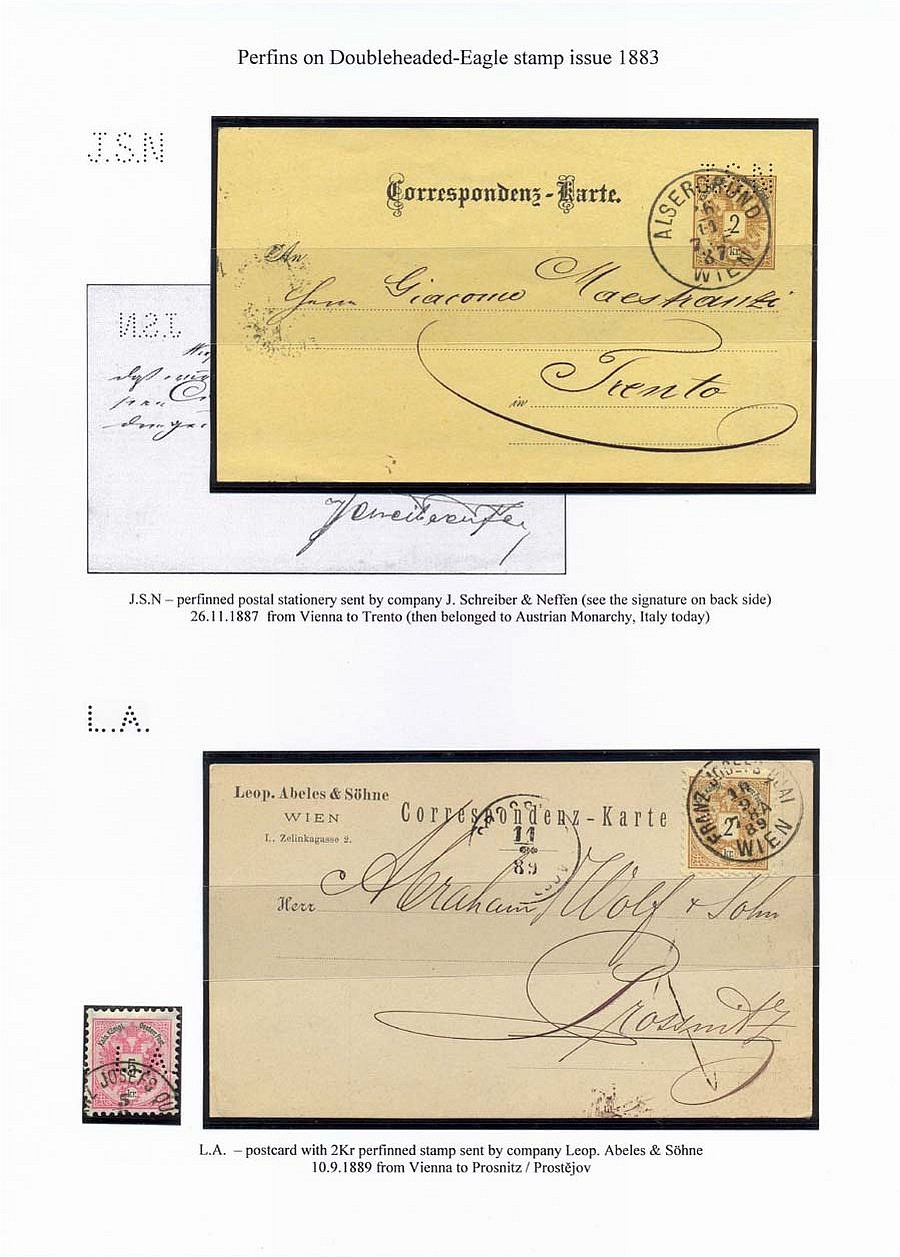 Perfins on Doubleheaded-Eagle stamp issue 1883
J.S.N
Correspondenz-Karte.
ALSERGRUND
WIEN
2
kr.
An
Herrn Giacomo Maestranzi
in Trento
J.S.N – perfinned postal stationery sent by company J. Schreiber & Neffen (see the signature on back side)
26.11.1887 from Vienna to Trento (then belonged to Austrian Monarchy, Italy today)
L.A.
Leop. Abeles & Söhne
WIEN
I., Zelinkagasse 2.
Correspondenz-Karte
FRANZ JOSEFS QUAI
WIEN
2
kr.
11
89
Herr Abraham Wolf & Sohn
Prossnitz
5
kr.
L.A. – postcard with 2Kr perfinned stamp sent by company Leop. Abeles & Söhne
10.9.1889 from Vienna to Prosnitz / Prostějov